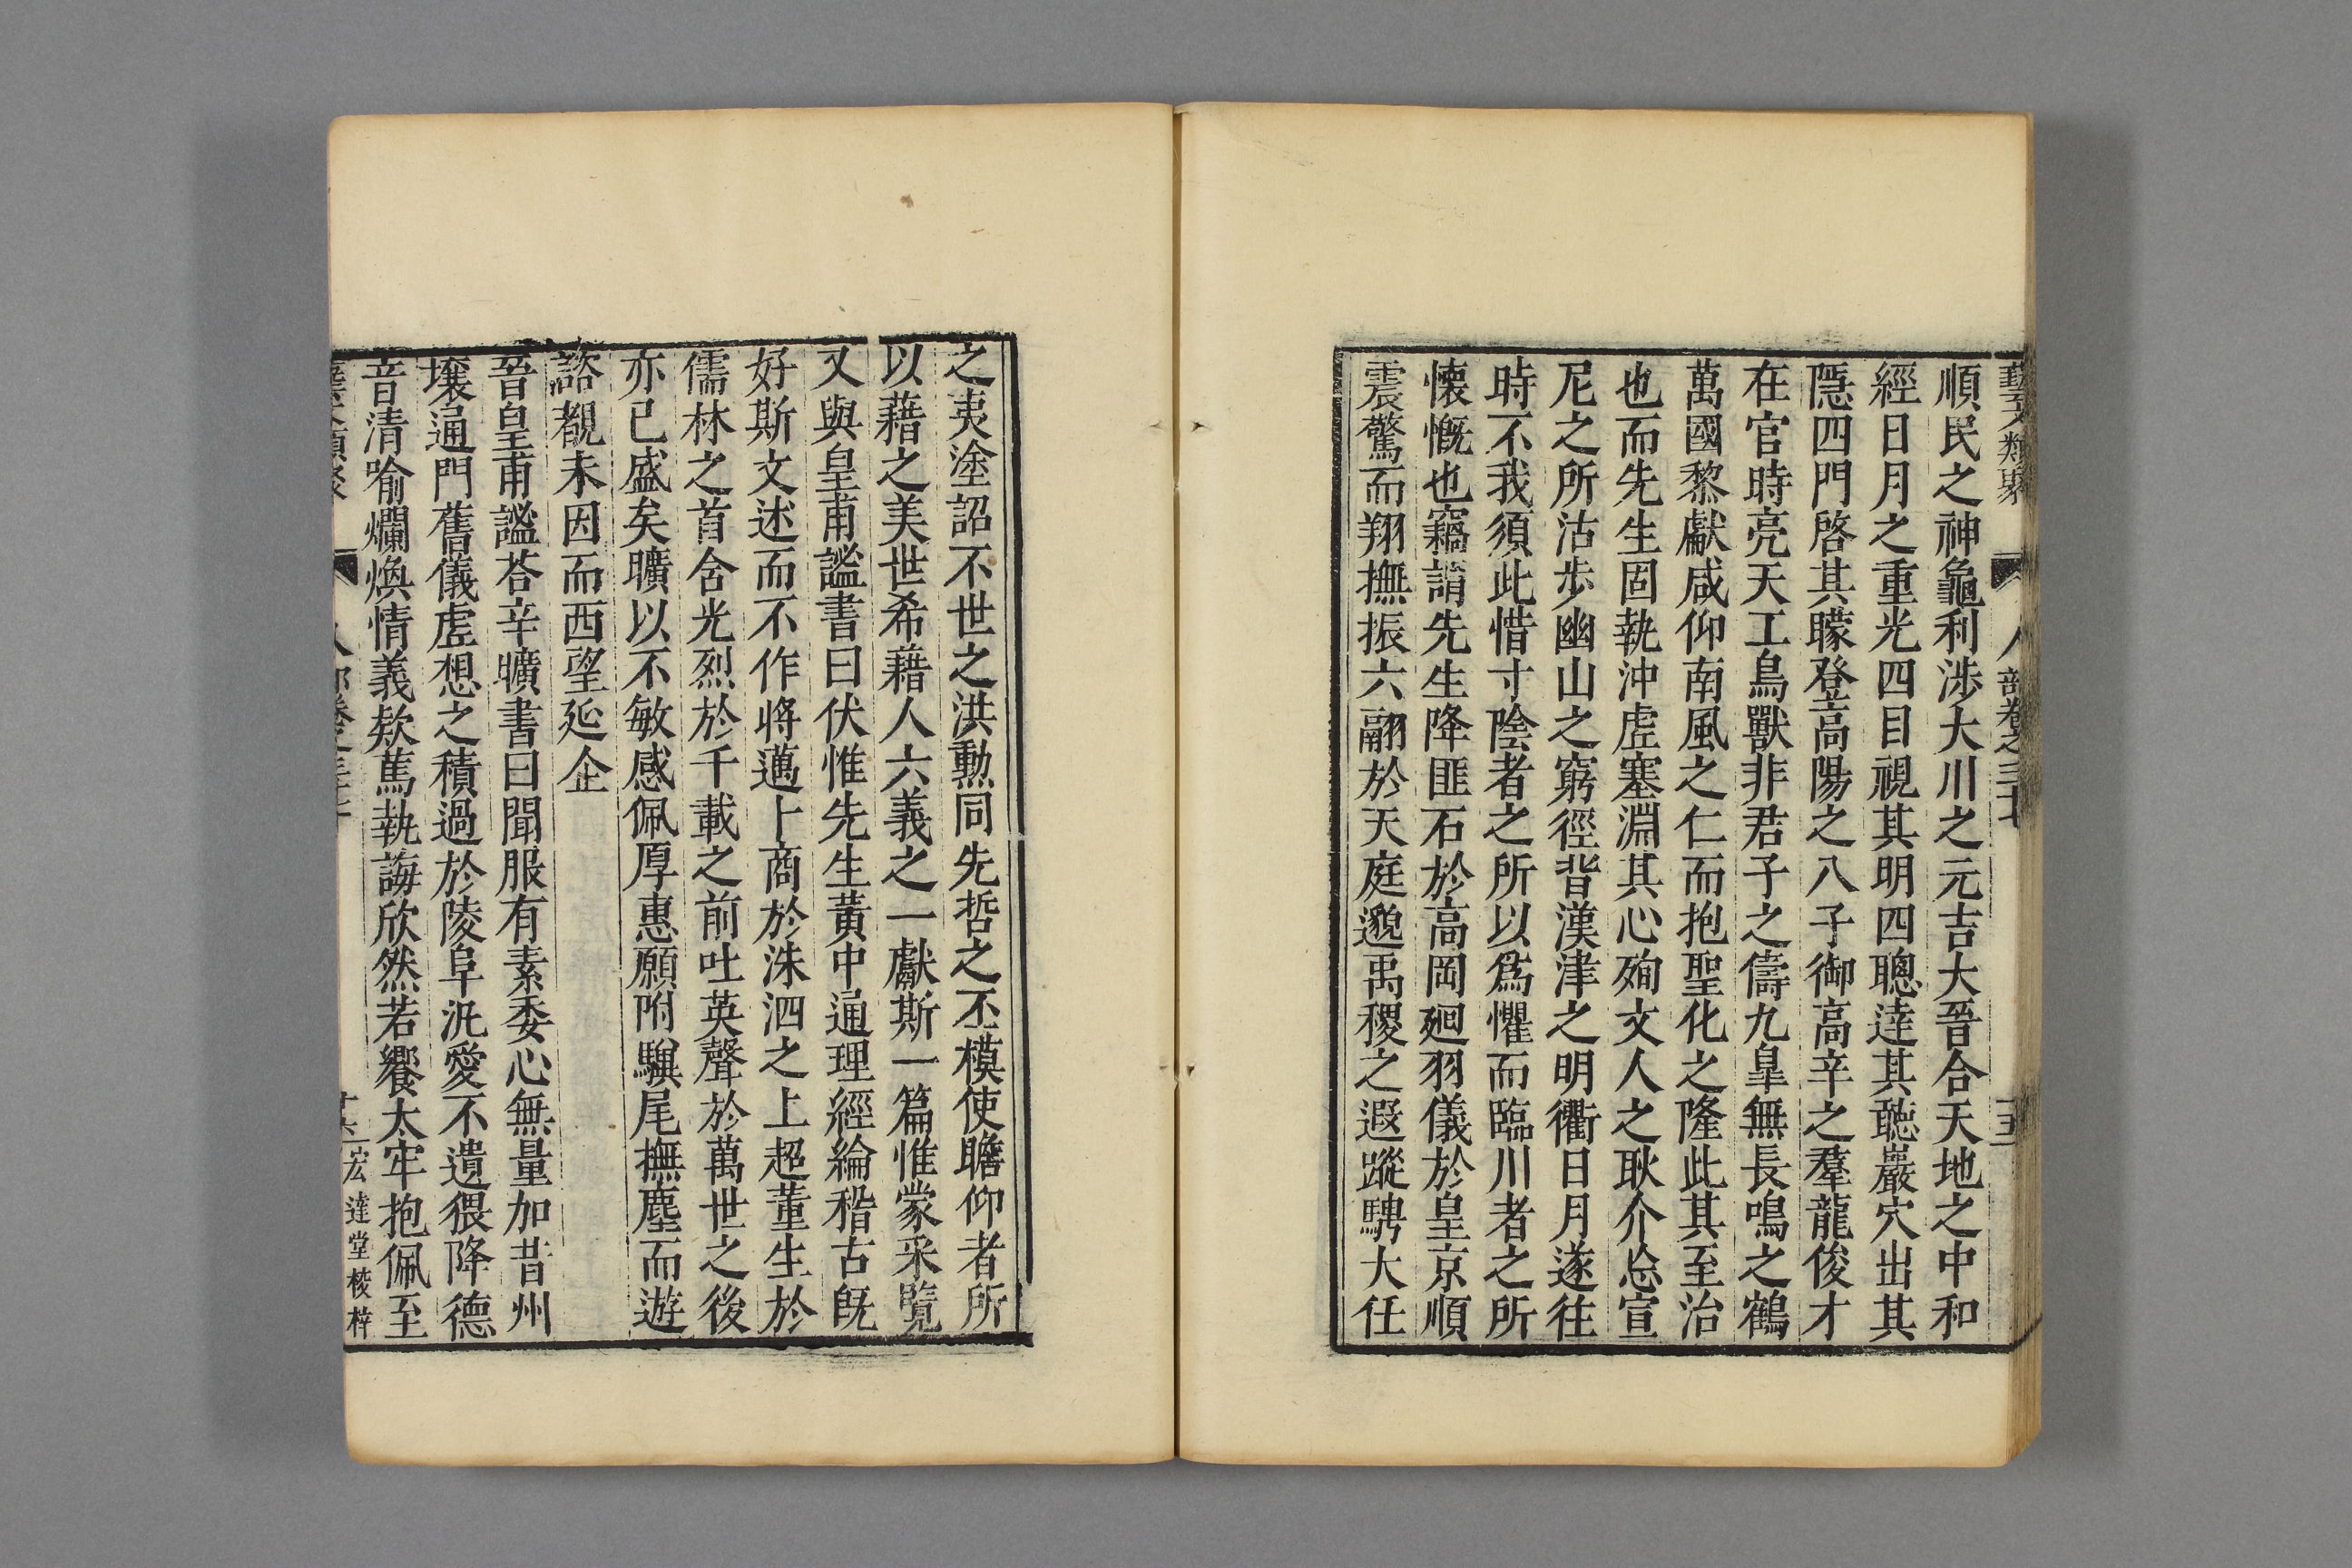 藝文類聚 人部卷之三十七 十五
順民之神龜利涉大川之元吉大晉合天地之中和
經日月之重光四目視其明四聰達其聽巖穴出其
隱四門啓其矇登高陽之八子御高辛之羣龍俊才
在官時亮天工鳥獸非君子之儔九臯無長鳴之鶴
萬國黎獻咸仰南風之仁而抱聖化之隆此其至治
也而先生固執沖虛塞淵其心殉文人之耿介忿宣
尼之所沽步幽山之窮徑背漢津之明衢日月遂往
時不我須此惜寸陰者之所以爲懼而臨川者之所
懐慨也竊謂先生降匪石於高岡廻羽儀於皇京順
震驚而翔撫振六翮於天庭邈禹稷之遐蹤騁大任
之夷塗詔不世之洪勳同先哲之丕模使瞻仰者所
以藉之美世希藉人六義之一獻斯一篇惟蒙采覽
又與皇甫謐書曰伏惟先生黃中通理經綸稽古旣
好斯文述而不作將邁卜商於洙泗之上超董生於
儒林之首含光烈於千載之前吐英聲於萬世之後
亦已盛矣曠以不敏感佩厚惠願附驥尾撫塵而遊
諮覩未因而西望延企
晉皇甫謐荅辛曠書曰聞服有素委心無量加昔州
壤通門舊儀虛想之積過於陵阜汎愛不遺猥降德
音清喻爛煥情義欵篤執誨欣然若饗太牢抱佩至
藝文類聚 人部卷之三十七 十六 宏達堂棱梓